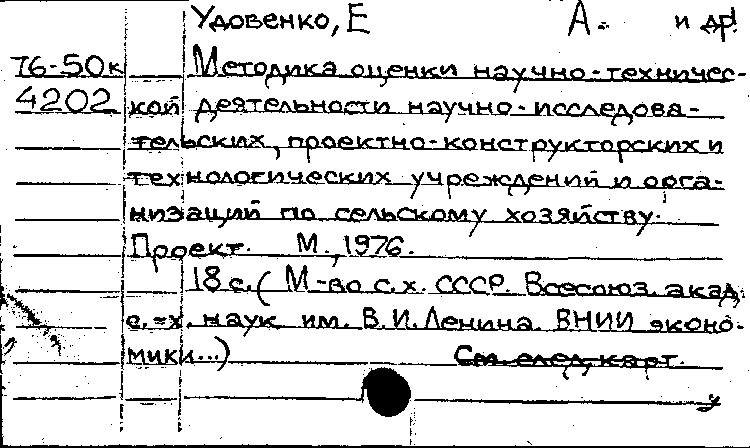 Удовенко, Е А. и др!
76-50к Методика оценки научно-техничес-
4202 кой деятельности научно-исследова-
тельских, проектно-конструкторских и
технологических учреждений и орга-
низаций по сельскому хозяйству.
Проект. М., 1976.
18 с. ( М-во с.х. СССР. Всесоюз. акад.
с.-х. наук им. В.И. Ленина. ВНИИ эконо-
мики...) См. след. карт.